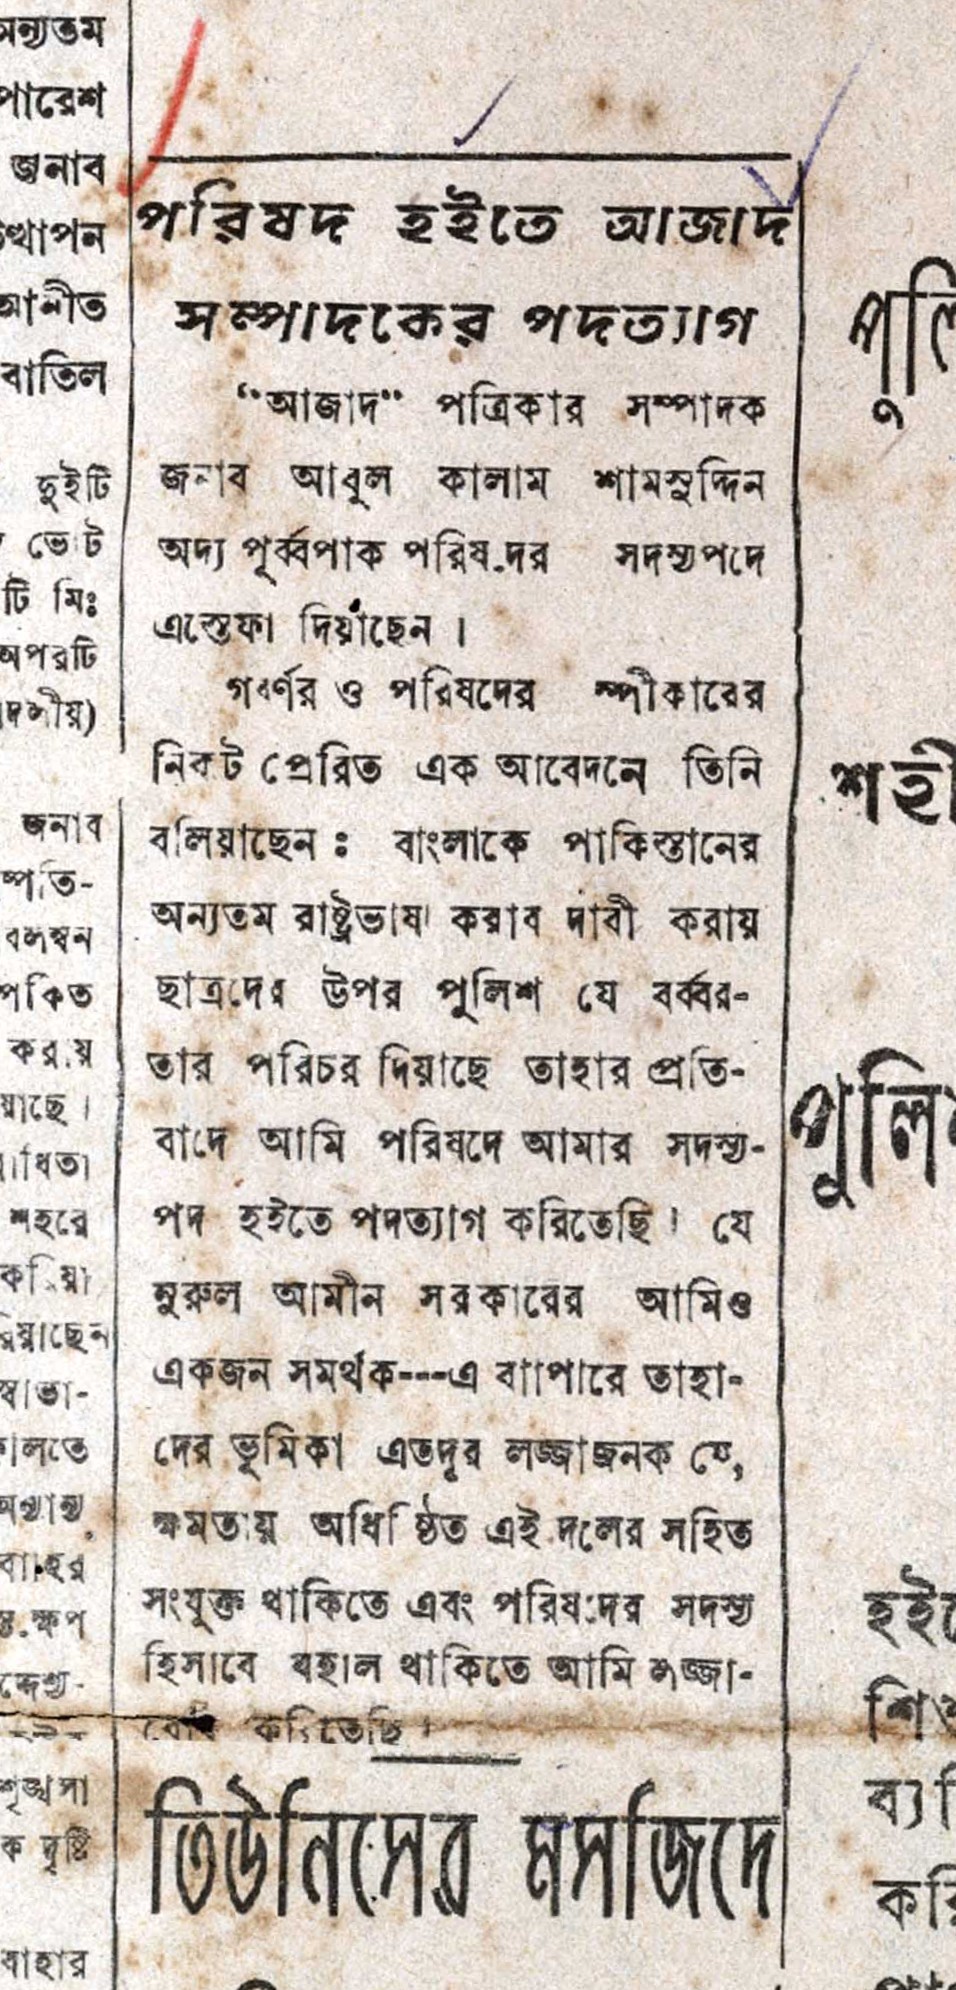 অন্যতম
পারেশ
জনাব
ত্থাপন
আনীত
বাতিল
দুইটি
ভোট
টি মিঃ
অপরটি
দলীয়)
জনাব
ম্পত্তি-
বলম্বন
পকিত
করায়
য়াছে।
াধিতা
শহরে
করিয়া
রিয়াছেন
স্বাভা-
ালতে
অন্যান্য
বাহির
ক্ষপ
দ্দেশ্য-
শৃঙ্খলা
ক দৃষ্টি
বাহার
পরিষদ হইতে আজাদ
সম্পাদকের পদত্যাগ
“আজাদ” পত্রিকার সম্পাদক
জনাব আবুল কালাম শামসুদ্দিন
অদ্য পূর্ব্বপাক পরিষদের সদস্যপদে
এস্তেফা দিয়াছেন।
গবর্ণর ও পরিষদের স্পীকারের
নিকট প্রেরিত এক আবেদনে তিনি
বলিয়াছেন : বাংলাকে পাকিস্তানের
অন্যতম রাষ্ট্রভাষা করাব দাবী করায়
ছাত্রদের উপর পুলিশ যে বর্ব্বর-
তার পরিচর দিয়াছে তাহার প্রতি-
বাদে আমি পরিষদে আমার সদস্য-
পদ হইতে পদত্যাগ করিতেছি। যে
নুরুল আমীন সরকারের আমিও
একজন সমর্থক---এ ব্যাপারে তাহা-
দের ভূমিকা এতদূর লজ্জাজনক যে,
ক্ষমতায় অধিষ্ঠিত এই দলের সহিত
সংযুক্ত থাকিতে এবং পরিষদের সদস্য
হিসাবে বহাল থাকিতে আমি লজ্জা-
বোধ করিতেছি।
তিউনিসের মসজিদে
পুলি
শহী
পুলি
হইতে
শি
ব্যা
করি